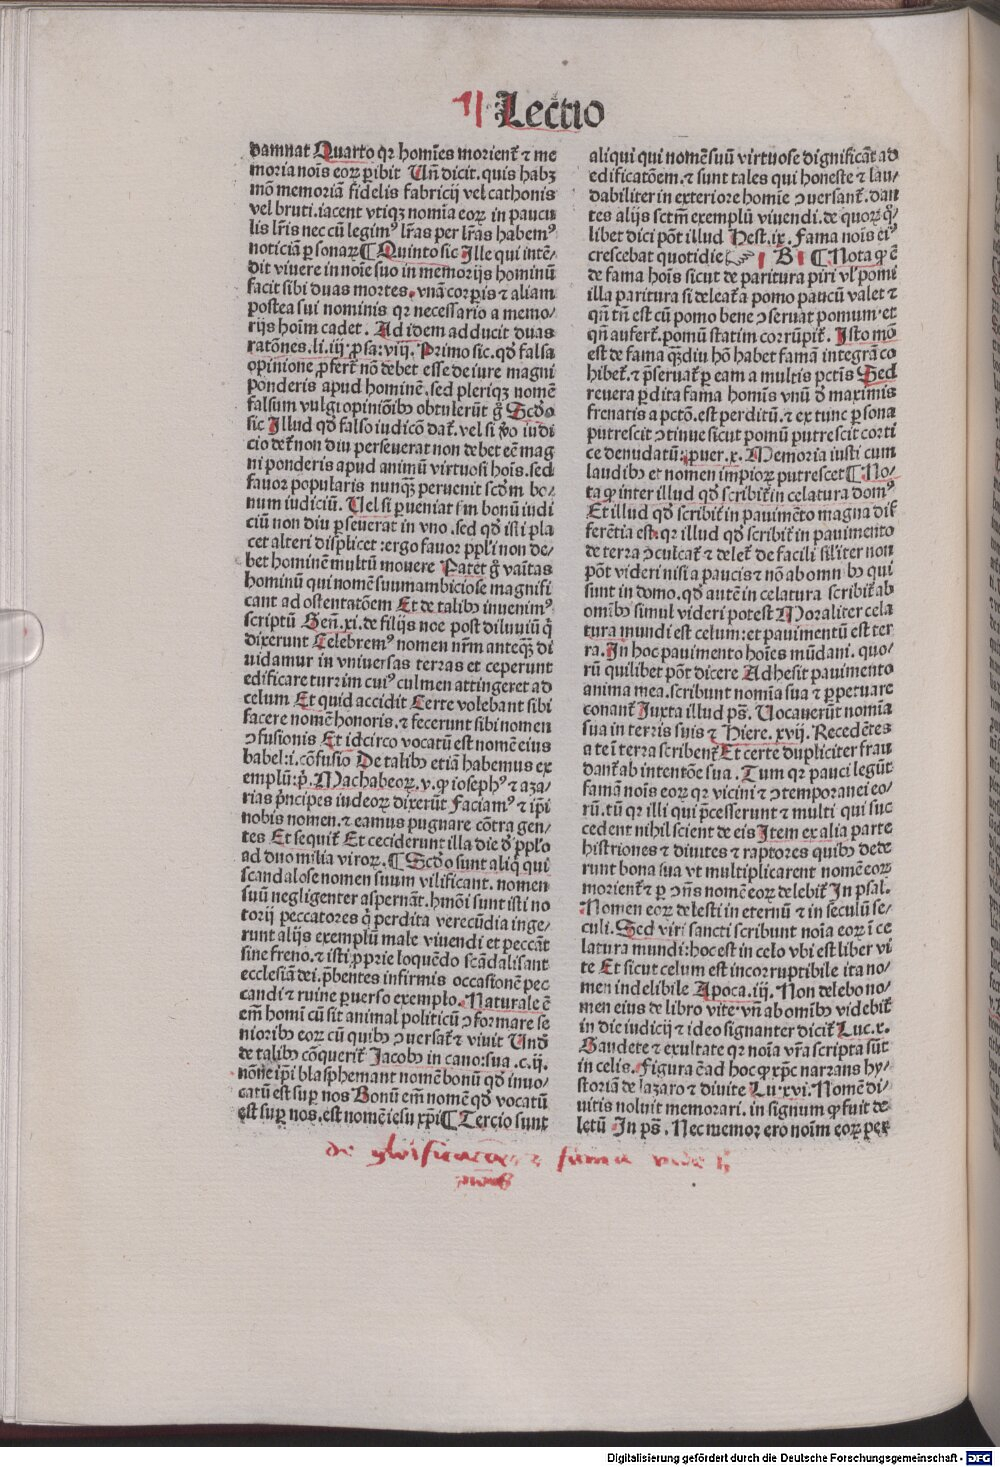 Lectio
damnat Quarto qꝛ homīes morient᷑ ⁊ me
moria noīs eoꝝ ꝑibit Uñ dicit. quis habꝫ
mō memoriā fidelis fabricij vel cathonis
vel bruti. iacent vtiqꝫ nomīa eoꝝ in paucu
lis lr̄is nec cū legimꝰ lr̄as per lr̄as habemꝰ
noticiā ꝑsonaꝝ ¶ Quinto sic Ille qui intē⸗
dit viuere in noīe suo in memorijs hominū
facit sibi duas mortes. vnā corꝑis ⁊ aliam
postea sui nominis qꝛ necessario a memo⸗
rijs hoīm cadet. Ad idem adducit duas
ratōnes. li. iij. ꝓsa. viij. Primo sic. qđ falsa
opinione ꝓfert᷑ nō debet esse de iure magni
ponderis apud hominē. sed pleriqꝫ nomē
falsum vulgi opiniōibꝰ obtulerūt g̊ Scđo
sic Illud qđ falso iudicō dat᷑. vel si v̊o iudi
cio det᷑ non diu perseuerat non debet eē mag
ni ponderis apud animū virtuosi hoīs. sed
fauor popularis nunqꝫ peruenit scđm bo⸗
num iudiciū. Uel si ꝑueniat ſm bonū iudi
ciū non diu ꝑseuerat in vno. sed qđ isti pla
cet alteri displicet : ergo fauor ppl'i non de⸗
bet hominē multū mouere Patet g̊ vaītas
hominū qui nomē suum ambiciose magnifi
cant ad ostentatōem Et de talibꝰ inuenimꝰ
scriptū Geñ. xi. de filijs noe post diluuiū q̇
dixerunt Celebremꝰ nomen nr̄m anteqꝫ di
uidamur in vniuersas terras et ceperunt
edificare turrim cuiꝰ culmen attingeret ad
celum Et quid accidit Certe volebant sibi
facere nomē honoris. ⁊ fecerunt sibi nomen
ↄfusionis Et idcirco vocatū est nomē eius
babel : i. cōfusio De talibꝰ etiā habemus ex
emplū : p̓. Machabeoꝝ. v. ꝙ iosephꝰ ⁊ aza⸗
rias p̓ncipes iudeoꝝ dixerūt Faciamꝰ ⁊ ip̄i
nobis nomen. ⁊ eamus pugnare cōtra gen⸗
tes Et sequit᷑ Et ceciderunt illa die đ ppl̓o
ad duo milia viroꝝ. ¶ Scđo sunt aliq̇ qui
scandalose nomen suum vilificant. nomen
suū negligenter aspernāt. hmōi sunt isti no
torij peccatores q̇ perdita verecūdia inge⸗
runt alijs exemplū male viuendi et peccāt
sine freno. ⁊ isti ꝓprie loquēdo scādalisant
ecclesiā dei. p̄bentes infirmis occasionē pec
candi ⁊ ruine ꝑuerso exemplo. Naturale ē
em̄ homī cū sit animal politicū ↄformare se
nioribꝰ eoꝝ cū quibꝰ ↄuersat᷑ ⁊ viuit Unđ
de talibꝰ cōquerit᷑ Jacobꝰ in cano: sua .c. ij.
nōne ip̄i blasphemant nomē bonū qđ inuo⸗
catū est suꝑ nos Bonū em̄ nomē qđ vocatū
est suꝑ nos. est nomē iesu xp̄i ¶ Tercio sunt
aliqui qui nomē suū virtuose dignificāt ad
edificatōem. ⁊ sunt tales qui honeste ⁊ lau⸗
dabiliter in exteriore homīe ↄuersant᷑. dan
tes alijs sctm̄ exemplū viuendi. de quoꝝ q̇
libet dici pōt illud Hest. ix. Fama noīs eiꝰ
crescebat quotidie ☞ B ¶ Nota ꝙ ē
de fama hoīs sicut de paritura piri vl' pomi
illa paritura si deleat᷑ a pomo paucū valet ⁊
qñ tñ est cū pomo bene ↄseruat pomum· et
qñ aufert᷑. pomū statim corrūpit᷑. Isto mō
est de fama qꝫdiu hō habet famā integrā co
hibet᷑. ⁊ p̄seruat᷑ ꝑ eam a multis pctīs Sed
reuera ꝑdita fama homīs vnū đ maximis
frenatis a pctō. est perditū. ⁊ ex tunc ꝑsona
putrescit ↄtinue sicut pomū putrescit corti
ce denudatū: ꝓuer. x. Memoria iusti cum
laudibꝰ et nomen impioꝝ putrescet ¶ No⸗
ta ꝙ inter illud qđ scribit᷑ in celatura domꝰ
Et illud qđ scribit᷑ in pauimēto magna dif
ferētia est. qꝛ illud qđ scribit᷑ in pauimento
de terra ↄculcat᷑ ⁊ delet᷑ de facili sil'iter non
pōt videri nisi a paucis ⁊ nō ab omnibꝰ qui
sunt in domo. qđ autē in celatura scribit᷑ ab
om̄ibꝰ simul videri potest Moraliter cela
tura mundi est celum : et pauimentū est ter
ra. In hoc pauimento hoīes mūdani. quo⸗
rū quilibet pōt dicere Adhesit pauimento
anima mea. scribunt nomīa sua ⁊ ꝑpetuare
conant᷑ Juxta illud ps̄. Uocauerūt nomīa
sua in terris suis ⁊ Hiere. xvij. Recedētes
a te ī terra scribent᷑ Et certe dupliciter frau
dant᷑ ab intentōe sua. Tum qꝛ pauci legūt
famā noīs eoꝝ qꝛ vicini ⁊ ↄtemporanei eo⸗
rū. tū qꝛ illi qui p̄cesserunt ⁊ multi qui suc
cedent nihil scient de eis Item ex alia parte
histriones ⁊ diuites ⁊ raptores quibꝰ dede
runt bona sua vt multiplicarent nomē eoꝝ
morient᷑ ⁊ ꝑ ↄñs nomē eoꝝ delebit᷑ In psal.
Nomen eoꝝ delesti in eternū ⁊ in seculū se⸗
culi. Sed viri sancti scribunt noīa eoꝝ ī ce
latura mundi : hoc est in celo vbi est liber vi
te Et sicut celum est incorruptibile ita no⸗
men indelibile Apoca. iij. Non delebo no⸗
men eius de libro vite· vñ ab om̄ibꝰ videbit᷑
in die iudicij ⁊ ideo signanter dicit᷑ Luc. x.
Gaudete ⁊ exultate qꝛ noīa vr̄a scripta sūt
in celis. Figura ē ad hoc ꝙ xp̄c narrans hy⸗
storiā de lazaro ⁊ diuite Lu. xvi. Nomē di⸗
uitis noluit memorari. in signum ꝙ fuit de⸗
letū In ps̄. Nec memor ero noīm eoꝝ per
de glorificacōe ⁊ fama vide
Digitalisierung gefördert durch die Deutsche Forschungsgemeinschaft - DFG